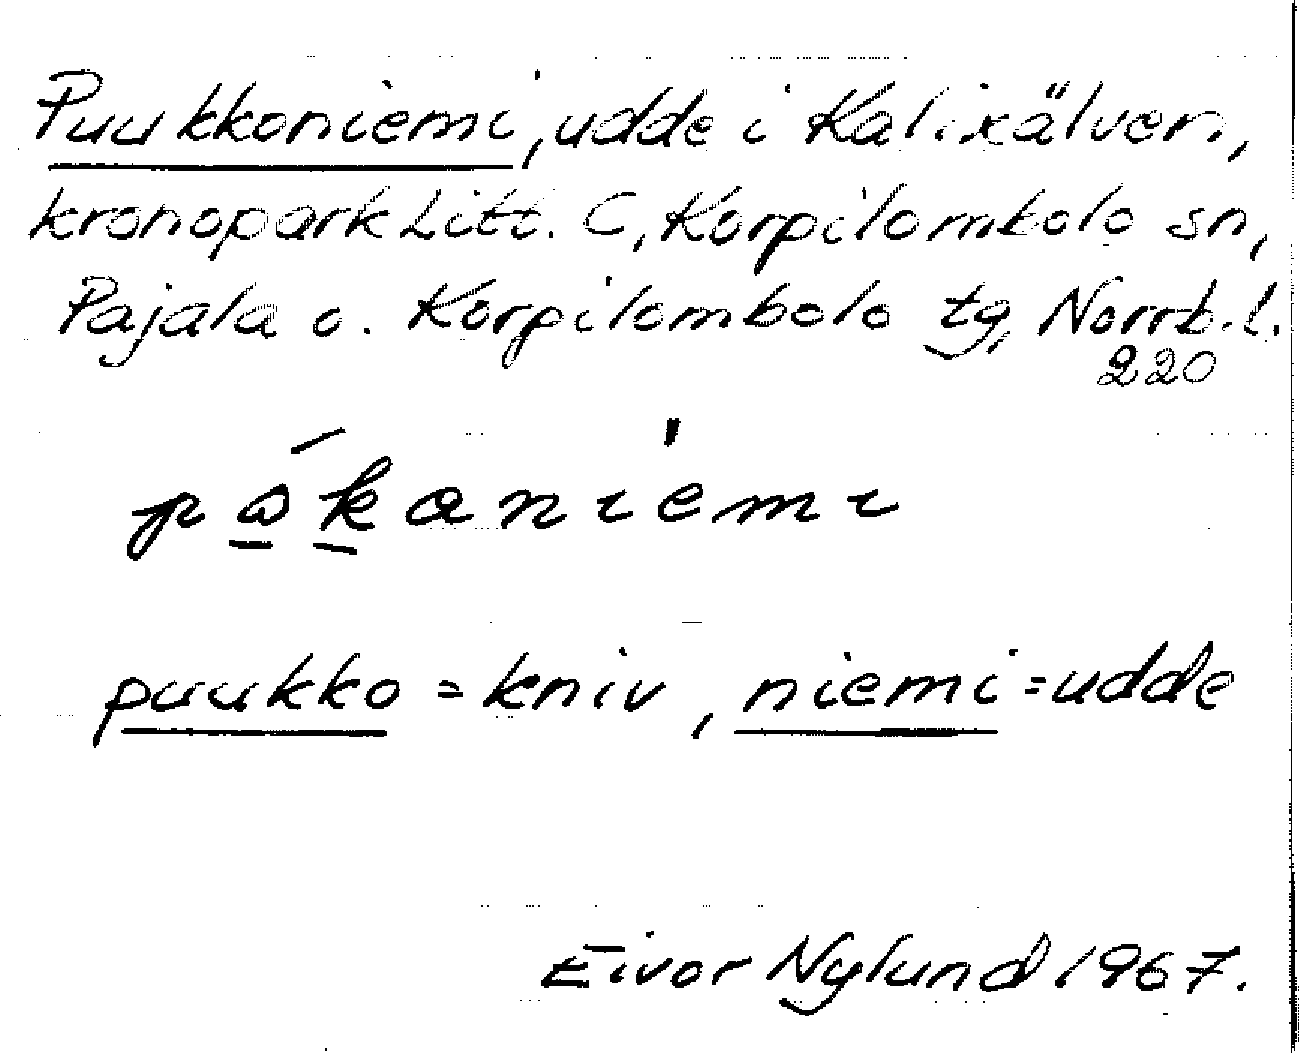 Puukkoniemi, udde i Kalixälven,
kronopark Litt. C, Korpilombolo sn,
Pajala o. Korpilombolo tg, Norrb. l.
220
puukko = kniv, niemi = udde
Eivor Nylund 1967.